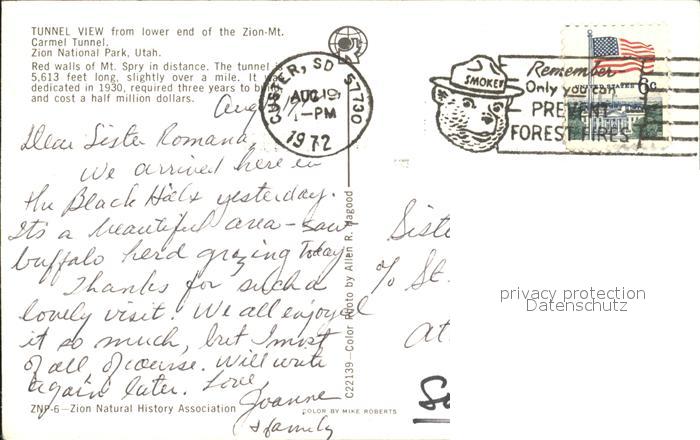 TUNNEL VIEW from lower end of the Zion-Mt.
Carmel Tunnel.
Zion National Park, Utah.
Red walls of Mt. Spry in distance. The tunnel is
5,613 feet long, slightly over a mile. It was
dedicated in 1930, required three years to build
and cost a half million dollars.
CUSTER, SD 57730
AUG 19
1-PM
1972
SMOKEY
Remember
Only you can
PREVENT
FOREST FIRES
6c
Dear Sister Romana,
We arrived here in
the Black Hills yesterday.
Its a beautiful area - saw
buffalo herd grazing today
Thanks for such a
lovely visit. We all enjoyed
it so much, but I most
of all of course. Will write
again later. Love,
Joanne
& family
ZNP-6—Zion Natural History Association
COLOR BY MIKE ROBERTS
C22139—Color Photo by Allen R. Hagood
Siste
% St.
at
privacy protection
Datenschutz